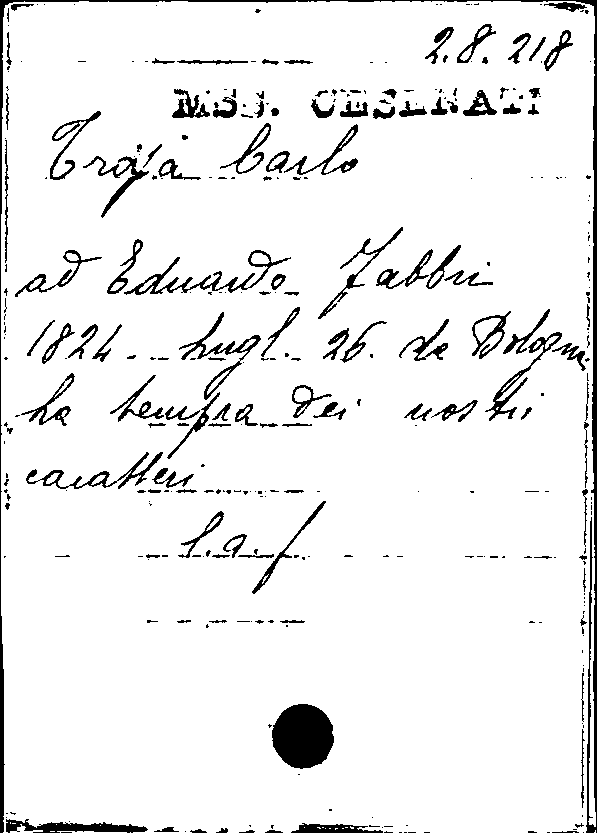 2.8.218
MSS. CESENATI
Troja Carlo
ad Eduardo Fabbri
1824. lugl. 26. da Bologna
La tempra dei nostri
caratteri
l.a.f